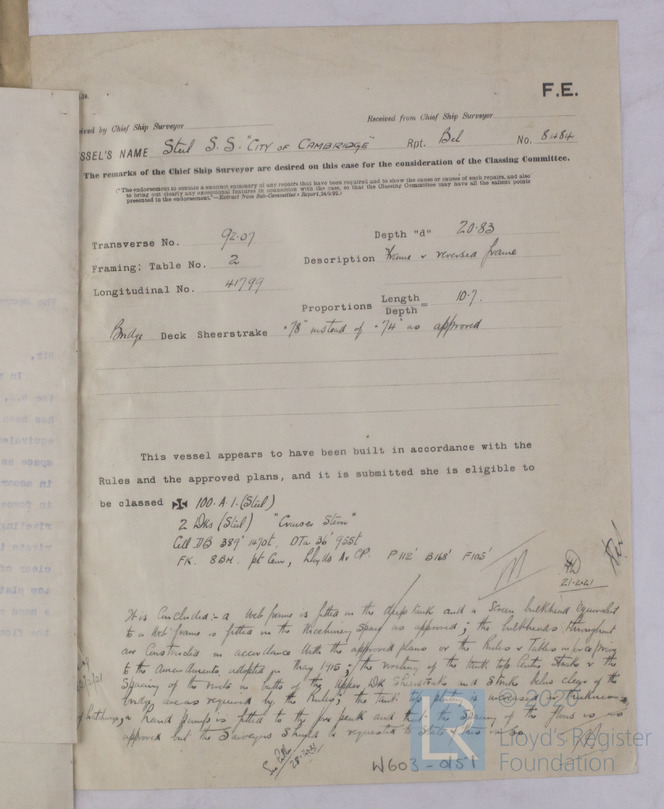 F.E.
ived by Chief Ship Surveyor
Received from Chief Ship Surveyor
SSEL'S NAME Steel S.S. "CITY OF CAMBRIDGE" Rpt. Bel No. 8484
The remarks of the Chief Ship Surveyor are desired on this case for the consideration of the Classing Committee.
("The endorsement to contain a succinct summary of any repairs that have been required and to show the cause or causes of such repairs, and also
to bring out clearly any exceptional features in connection with the case, so that the Classing Committee may have all the salient points
presented in the endorsement."—Extract from Sub-Committee's Report,
Transverse No. 92.07 Depth "d" 20.83
Framing: Table No. 2 Description Frame & reversed frame
Longitudinal No. 41799
Proportions Length / Depth = 10.7.
Bridge Deck Sheerstrake .78" instead of .74" as approved
This vessel appears to have been built in accordance with the
Rules and the approved plans, and it is submitted she is eligible to
be classed ✠ 100.A.1.(Steel)
2 Dks (Steel) "Cruiser Stern"
Cell DB 389' 1470t, 36' 955t
FK. 8BH. pt Cem, Lloyds A & CP. P 112' B 168' F 105'
21.2.21
It is concluded:- a Web frame is fitted in the deep tank and a Screen bulkhead equivalent
to a Web frame is fitted in the Machinery space as approved; the bulkheads throughout
are constructed in accordance with the approved plans or the Rules & Tables
to the Amendments adopted in May 1915; the of the tank top & the
Spacing of the rivets in butts of the upper Dk Sheerstrake and Strake below clear of the
bridge are as required by the Rules; the tank top plating is increased in thickness
of hatchways, a hand pump is fitted to the fore peak and that the spacing of the floors is as
approved but the Surveyors should be requested to state this is so.
© 2020
LR
Lloyd's Register
Foundation
W603-0151